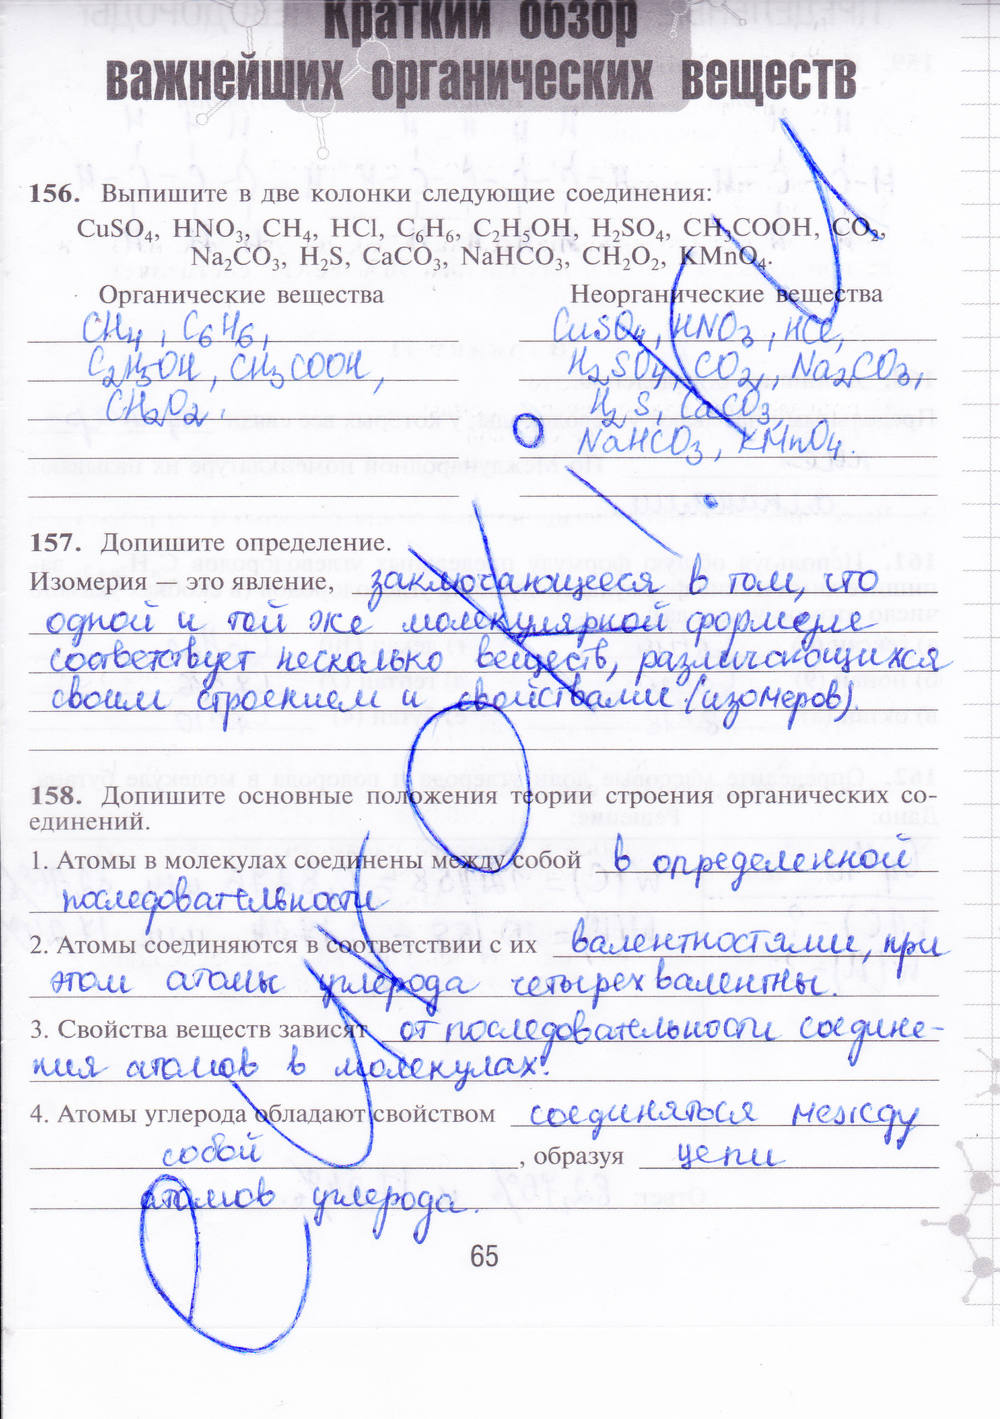 Краткий обзор
важнейших органических веществ
156. Выпишите в две колонки следующие соединения:
CuSO₄, HNO₃, CH₄, HCl, C₆H₆, C₂H₅OH, H₂SO₄, CH₃COOH, CO₂,
Na₂CO₃, H₂S, CaCO₃, NaHCO₃, CH₂O₂, KMnO₄.
Органические вещества
CH₄, C₆H₆,
C₂H₅OH, CH₃COOH,
CH₂O₂.
Неорганические вещества
CuSO₄, HNO₃, HCl,
H₂SO₄, CO₂, Na₂CO₃,
H₂S, CaCO₃,
NaHCO₃, KMnO₄.
157. Допишите определение.
Изомерия — это явление, заключающееся в том, что
одной и той же молекулярной формуле
соответствует несколько веществ, различающихся
своим строением и свойствами (изомеров).
158. Допишите основные положения теории строения органических со-
единений.
1. Атомы в молекулах соединены между собой в определенной
последовательности
2. Атомы соединяются в соответствии с их валентностями, при
этом атомы углерода четырехвалентны.
3. Свойства веществ зависят от последовательности соедине-
ния атомов в молекулах.
4. Атомы углерода обладают свойством соединяться между
собой, образуя цепи
атомов углерода.
65